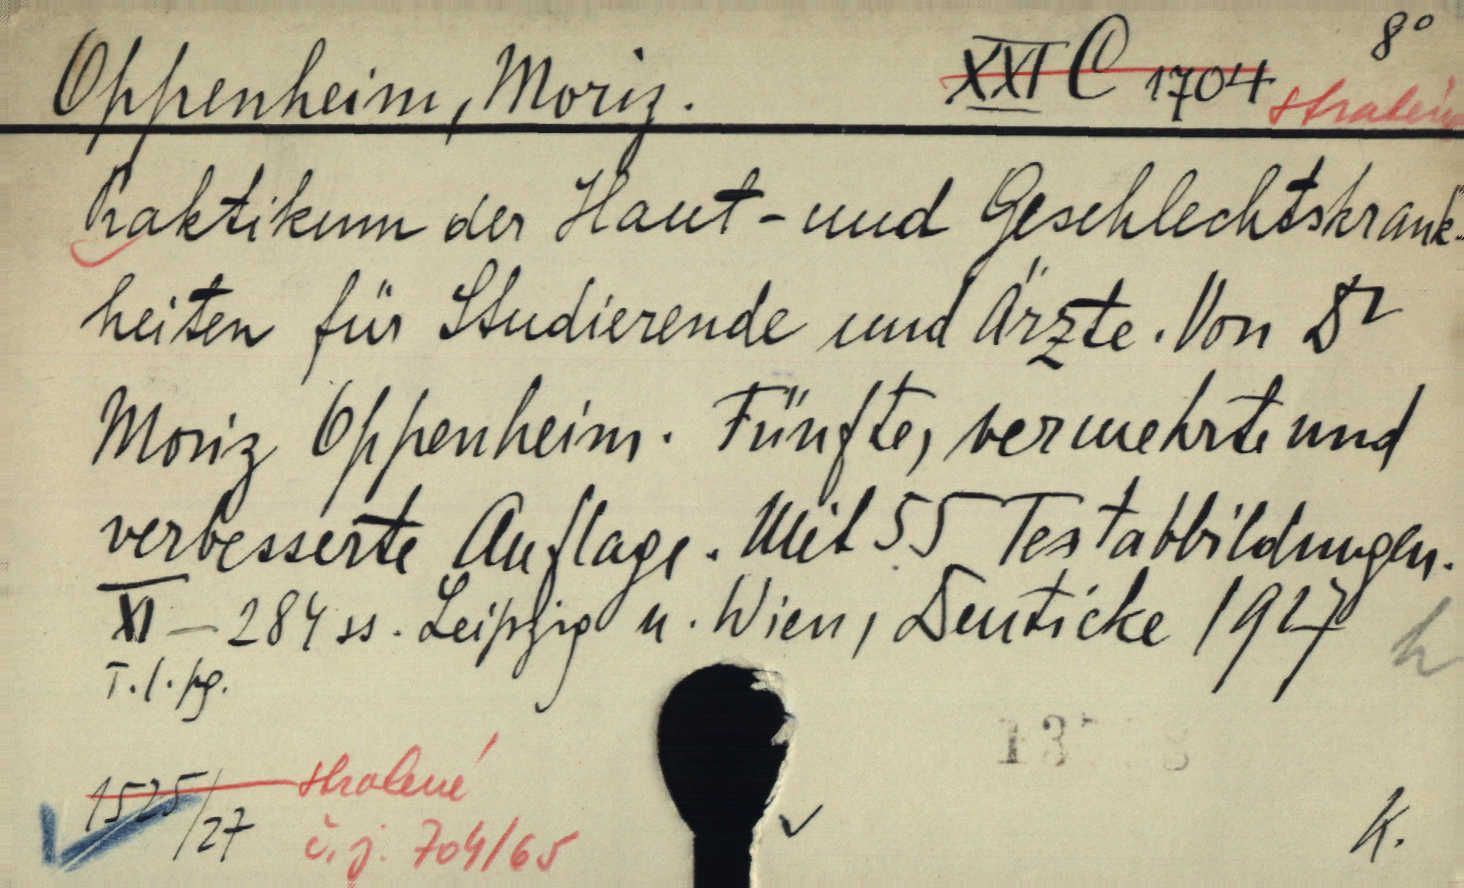 8°
Oppenheim, Moriz. XXI C 1704 stracené
Praktikum der Haut- und Geschlechtskrank-
heiten für Studierende und Ärzte. Von Dr
Moriz Oppenheim. Fünfte, vermehrte und
verbesserte Auflage. Mit 55 Textabbildungen.
XI — 284 ss. Leipzig u. Wien, Deuticke 1927
T. l. pg.
1525/27 stracené
č. j. 704/65
K.